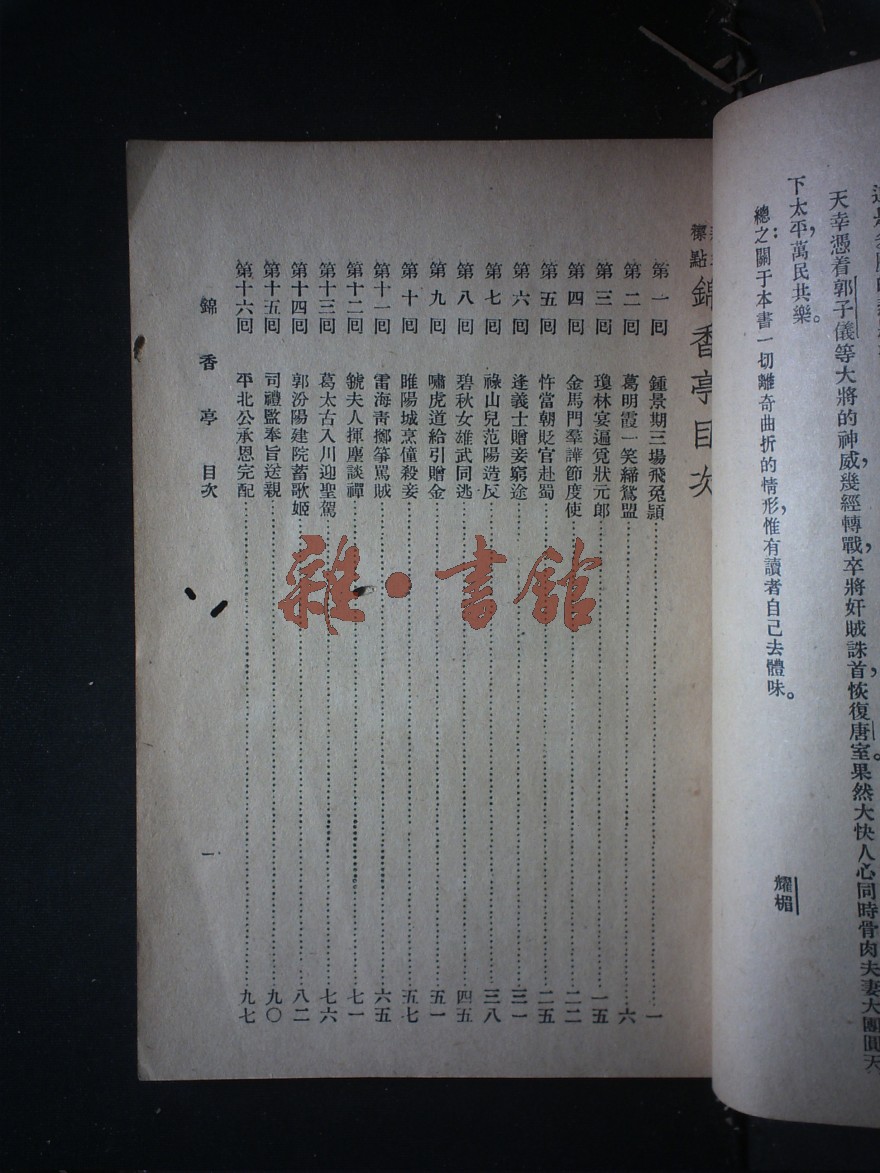 天幸憑着郭子儀等大將的神威，幾經轉戰，卒將奸賊誅首，恢復唐室。果然大快人心，同時骨肉夫妻大團圓，天
下太平，萬民共樂。
總之：關于本書一切離奇曲折的情形，惟有讀者自己去體味。
耀楣
標點 錦香亭目次
第一回 鍾景期三場飛兔頴 一
第二回 葛明霞一笑締鴛盟 六
第三回 瓊林宴遍覓狀元郎 一五
第四回 金馬門羣譁節度使 二二
第五回 忤當朝貶官赴蜀 二五
第六回 逢義士贈妾窮途 三一
第七回 祿山兒范陽造反 三八
第八回 碧秋女雄武同逃 四五
第九回 嘯虎道給引贈金 五一
第十回 睢陽城烹僮殺妾 五七
第十一回 雷海青擲箏罵賊 六五
第十二回 虢夫人揮麈談禪 七一
第十三回 葛太古入川迎聖駕 七六
第十四回 郭汾陽建院蓄歌姬 八二
第十五回 司禮監奉旨送親 九〇
第十六回 平北公承恩完配 九七
錦香亭 目次 一
雜·書館